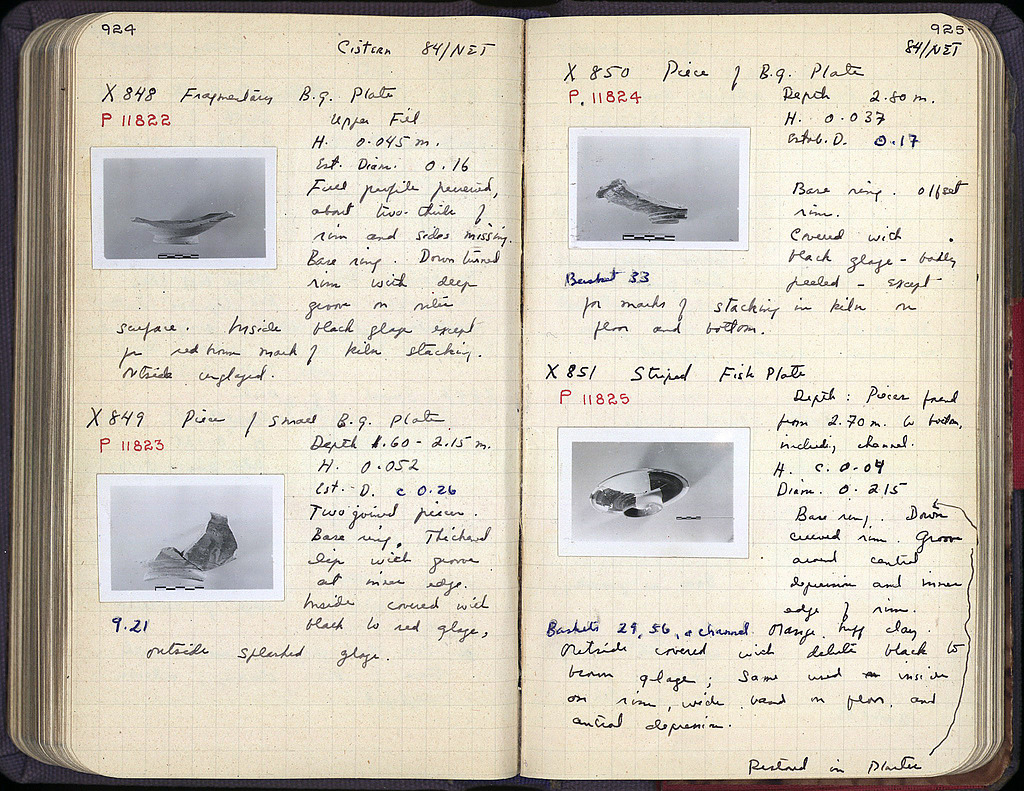 924
Cistern 84/ΝΣΤ
X 848 Fragmentary B.g. Plate
P 11822
Upper Fill
H. 0.045 m.
Est. Diam. 0.16
Full profile preserved,
about two-thirds of
rim and sides missing.
Base ring. Down turned
rim with deep
groove on outer
surface. Inside black glaze except
for red brown mark of kiln stacking.
Outside unglazed.
X 849 Piece of small B.g. Plate
P 11823
Depth 1.60 - 2.15 m.
H. 0.052
Est. D. c 0.26
Two joined pieces.
Base ring. Thickened
lip with groove
at inner edge.
Inside covered with
black to red glaze,
9.21
outside splashed glaze.
925
84/ΝΣΤ
X 850 Piece of B.g. Plate
P. 11824
Depth 2.80 m.
H. 0.037
Estab. D. 0.17
Base ring. Offset
rim.
Covered with
black glaze - badly
peeled - except
Basket 33
for marks of stacking in kiln on
floor and bottom.
X 851 Striped Fish Plate
P 11825
Depth: Pieces found
from 2.70 m. to bottom,
including channel.
H. c. 0.04
Diam. 0.215
Base ring. Down
curved rim. Groove
around central
depression and inner
edge of rim.
Baskets 29, 56, + channel. Orange buff clay.
Outside covered with dilute black to
brown glaze; same used inside
on rim, wide band on floor, and
central depression.
Restored in Plaster